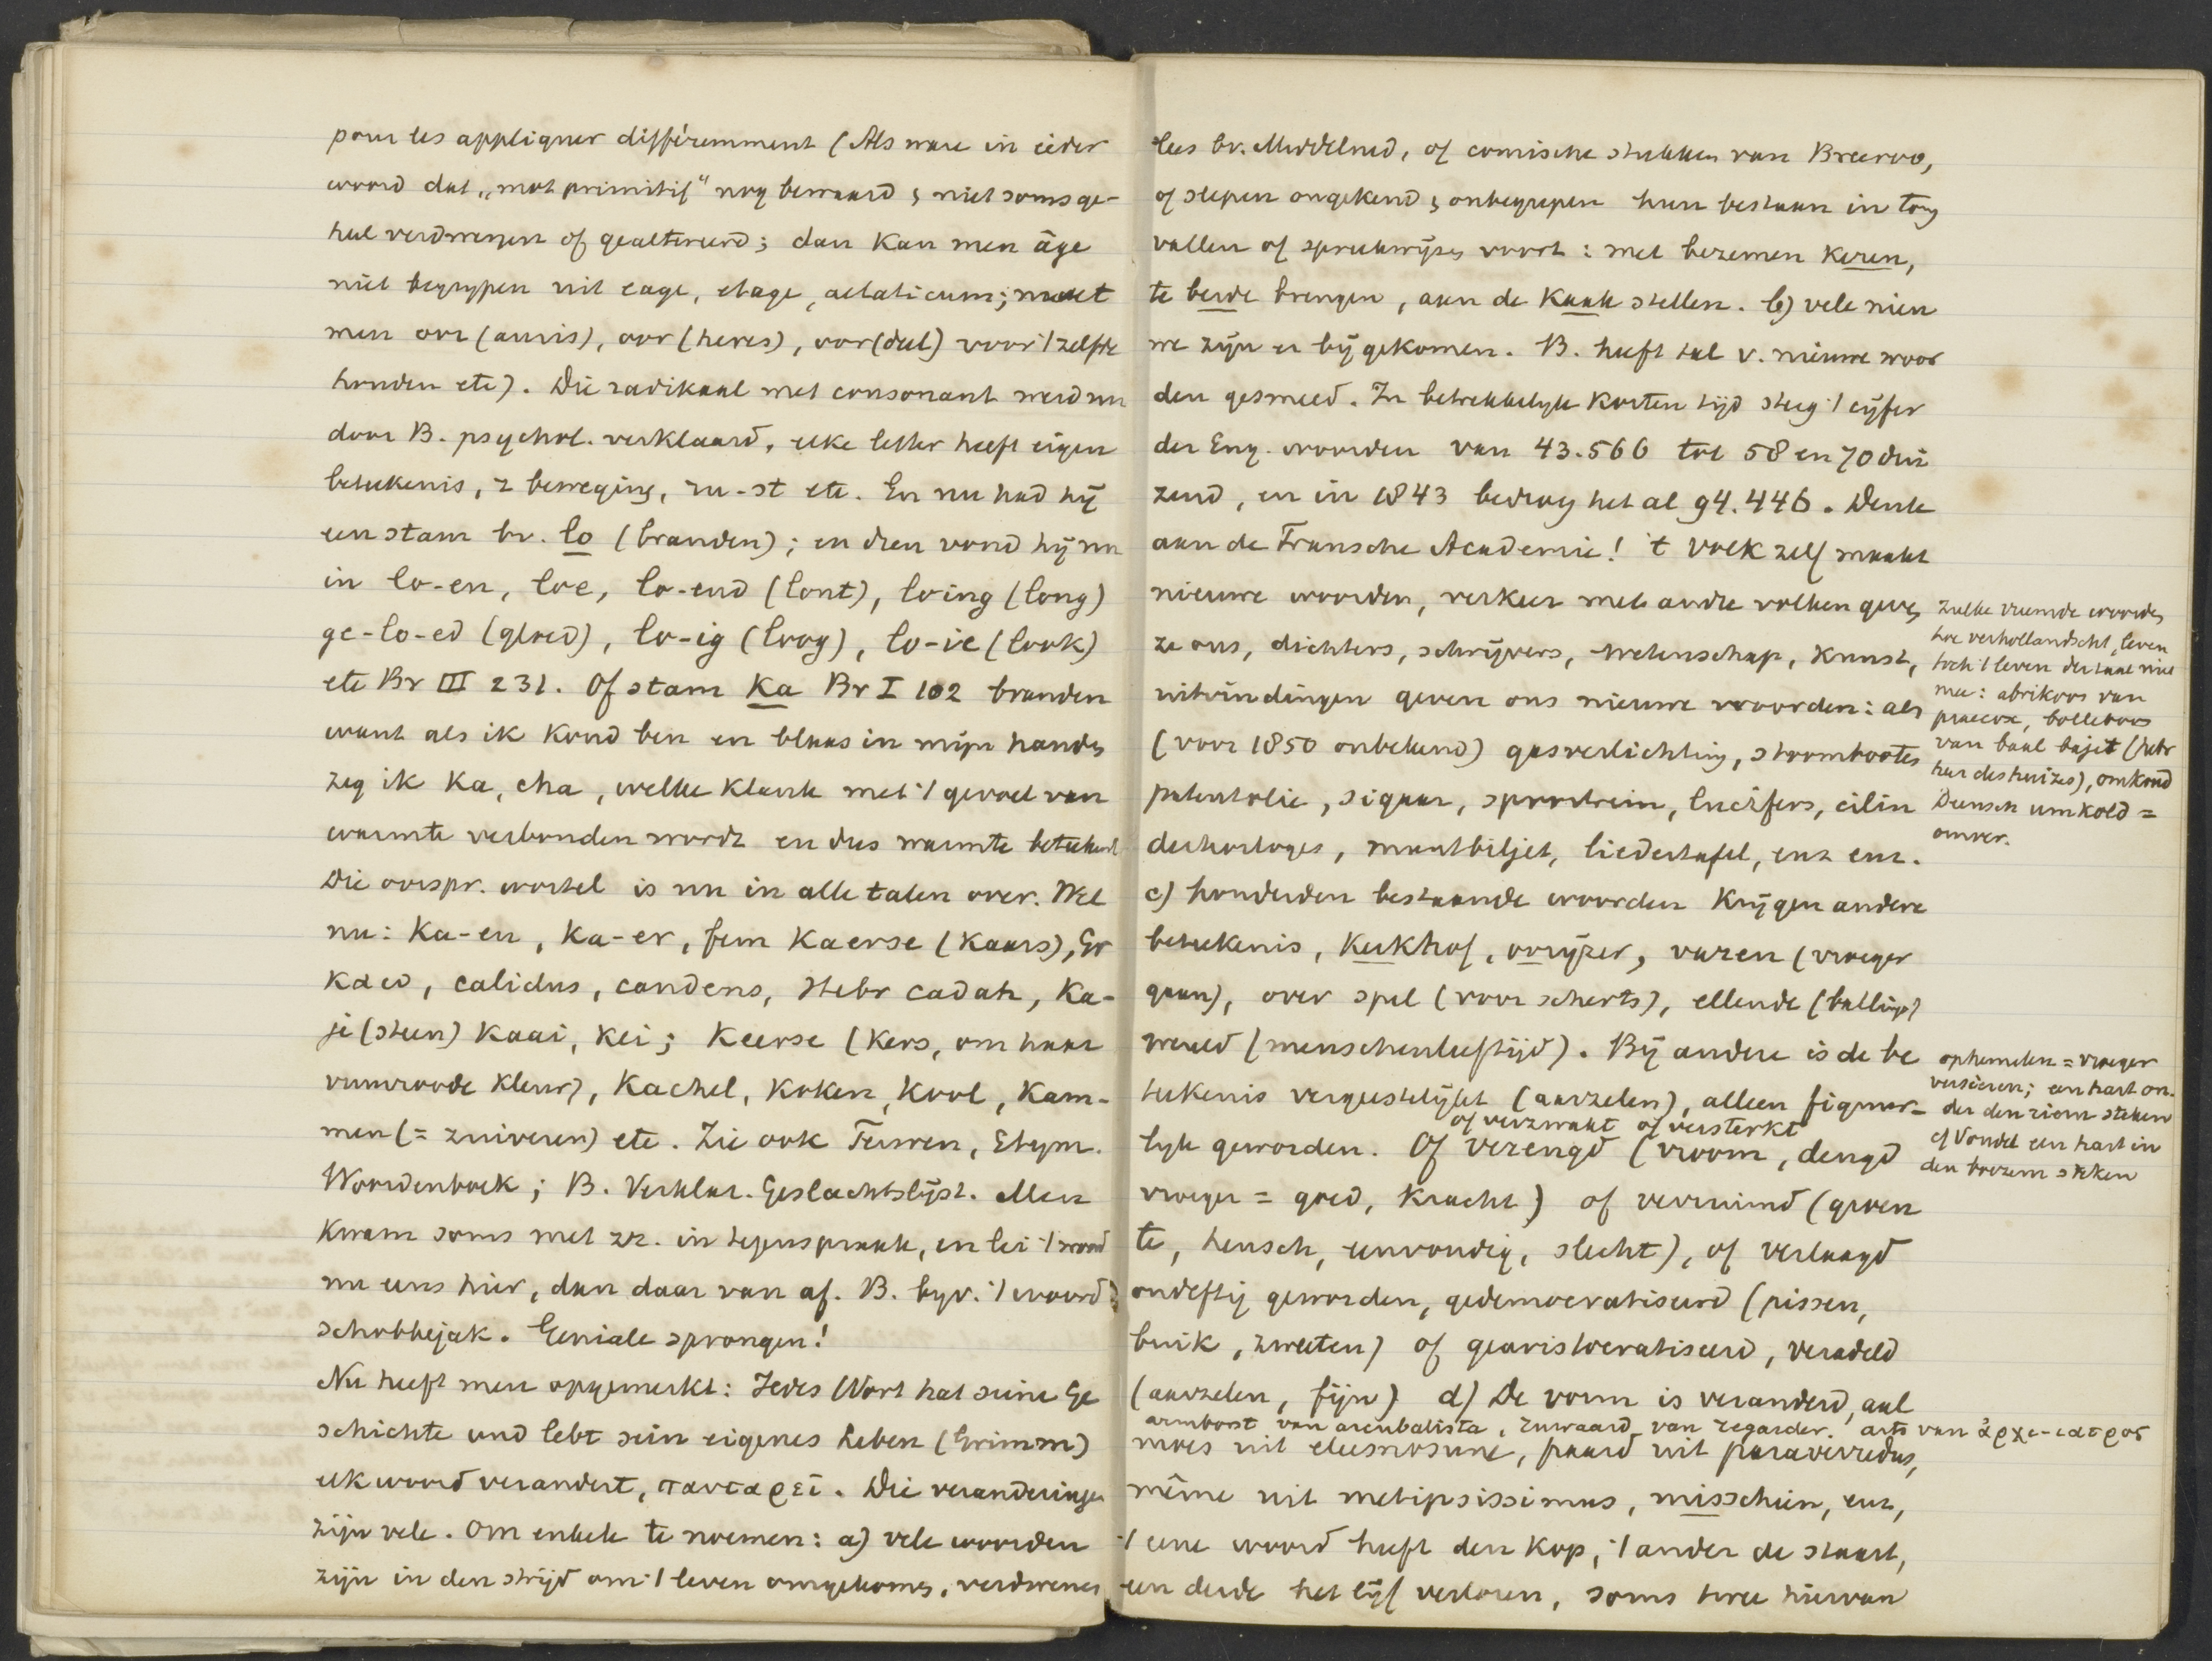 pour les appliquer différemment (Als ware in ieder
woord dat „mot primitif" nog bewaard & niet soms ge-
heel verdwenen of gealtereerd; dan kan men âge
niet begrypen uit eage, etage, aetaticum; moet
men oor (auris), oor (heres), oor(deel) voor 't zelfde
houden etc). Die radikaal met consonant werd nu
door B. psychol. verklaard, elke letter heeft eigen
beteekenis, z beweging, ru-st etc. En nu had hij
een stam bv. lo (branden); en dien vond hij nu
in lo-en, loe, lo-end (lont), loing (long)
ge-lo-ed (gloed), lo-ig (loog), lo-ic (look)
etc Br III 231. Of stam Ka Br I 102 branden
want als ik koud ben en blaas in mijn handen
zeg ik Ka, cha, welke klank met 't gevoel van
warmte verbonden wordt en dus warmte beteekent
Die oorspr. wortel is nu in alle talen over. Wel
nu: Ka-en, Ka-er, fem Kaerse (Kaars), Gr
καιω, calidus, candens, Hebr cadah, Ka-
je (steen) Kaai, Kei; Keerse (Kers, om haar
vuurroode kleur), Kachel, Koken, Kool, Kam-
men (= zuiveren) etc. Zie ook Terwen, Etym.
Woordenboek; B. Verklar. Geslachtslijst. Men
kwam soms met zz. in tegenspraak, en lei 't woord
nu eens hier, dan daar van af. B. byv. 't woord
schobbejak. Geniale sprongen!
Nu heeft men opgemerkt: Jedes Wort hat seine Ge
schichte und lebt sein eigenes Leben (Grimm)
elk woord verandert, παντα ρεῖ. Die veranderingen
zijn vele. Om enkele te noemen: a) vele woorden
zijn in den strijd om 't leven omgekomen, verdwenen
lees bv. Middelned, of comische stukken van Breeroo,
of slepen ongekend & onbegrepen hun bestaan in tong
vallen of spreekwijzen voort: met bezemen keren,
te berde brengen, aan de kaak stellen. b) vele nieu
we zijn er bijgekomen. B. heeft tal v. nieuwe woor
den gesmeed. In betrekkelyk korten tijd steeg 't cijfer
der Eng. woorden van 43.566 tot 58 en 70 dui
zend, en in 1843 bedroeg het al 94.446. Denk
aan de Fransche Academie! 't Volk zelf maakt
nieuwe woorden, verkeer met andre volken geven
ze ons, dichters, schrijvers, wetenschap, kunst,
uitvindingen geven ons nieuwe woorden: als
(voor 1850 onbekend) gasverlichting, stoombooten
patentolie, sigaar, spoortrein, lucifers, cilin
derhorloges, muntbiljet, liedertafel, enz enz.
zulke vreemde woorden
hoe verhollandscht, leven
toch 't leven der taal niet
mee: abrikoos van
praecox, bolleboos
van baal bajit (hebr
heer des huizes), omkoud
Deensch umkold =
omver.
c) honderden bestaande woorden krijgen andere
beteekenis, kerkhof, oorijzer, varen (vroeger
gaan), over spel (voor scherts), ellende (balling)
wereld (menschenleeftijd). Bij andere is de be
teekenis vergeestelijkt (aarzelen), alleen figuur-
of verzwakt of versterkt
lyk geworden. Of verengd (vroom, deugd
vroeger = goed, kracht) of verruimd (geven
te, heusch, eenvoudig, slecht), of verlaagd
ondeftig geworden, gedemocratiseerd (pissen,
buik, zweeten) of gearistocratiseerd, veradeld
(aarzelen, fijn) d) De vorm is veranderd, aal
armborst van arcubalista, zuwaard van regarder. arts van ἀρχι-ιατρος
moes uit eleemosune, paard uit paraveredus,
même uit metipsissimus, misschien, enz,
't eene woord heeft den kop, 't ander de staart,
een derde het lijf verloren, soms twee hiervan
ophemelen = vroeger
versieren; een hart on-
der den riem steken
cf Vondel een hart in
den boezem steken